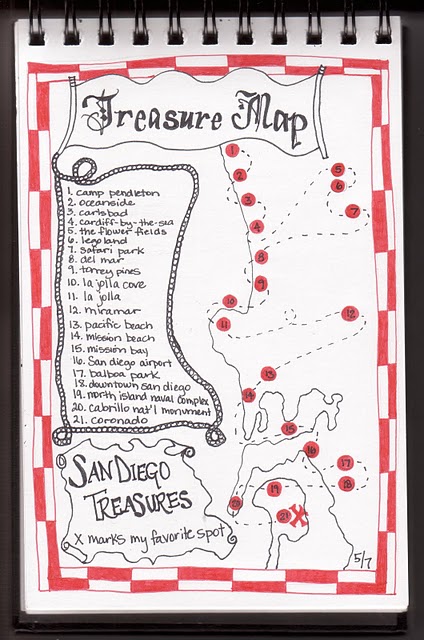 Treasure Map
1. camp pendleton
2. oceanside
3. carlsbad
4. cardiff-by-the-sea
5. the flower fields
6. legoland
7. safari park
8. del mar
9. torrey pines
10. la jolla cove
11. la jolla
12. miramar
13. pacific beach
14. mission beach
15. mission bay
16. San diego airport
17. balboa park
18. downtown san diego
19. north island naval complex
20. cabrillo nat'l monument
21. coronado
1
2
3
4
5
6
7
8
9
10
11
12
13
14
15
16
17
18
19
20
21
X
SAN DIEGO
TREASURES
X marks my favorite spot
5/7